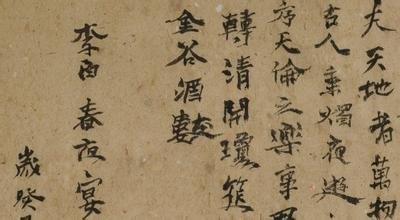 夫天地者萬物
古人秉燭夜遊
序天倫之樂事
轉清開瓊筵
金谷酒數
李白春夜宴
歲癸